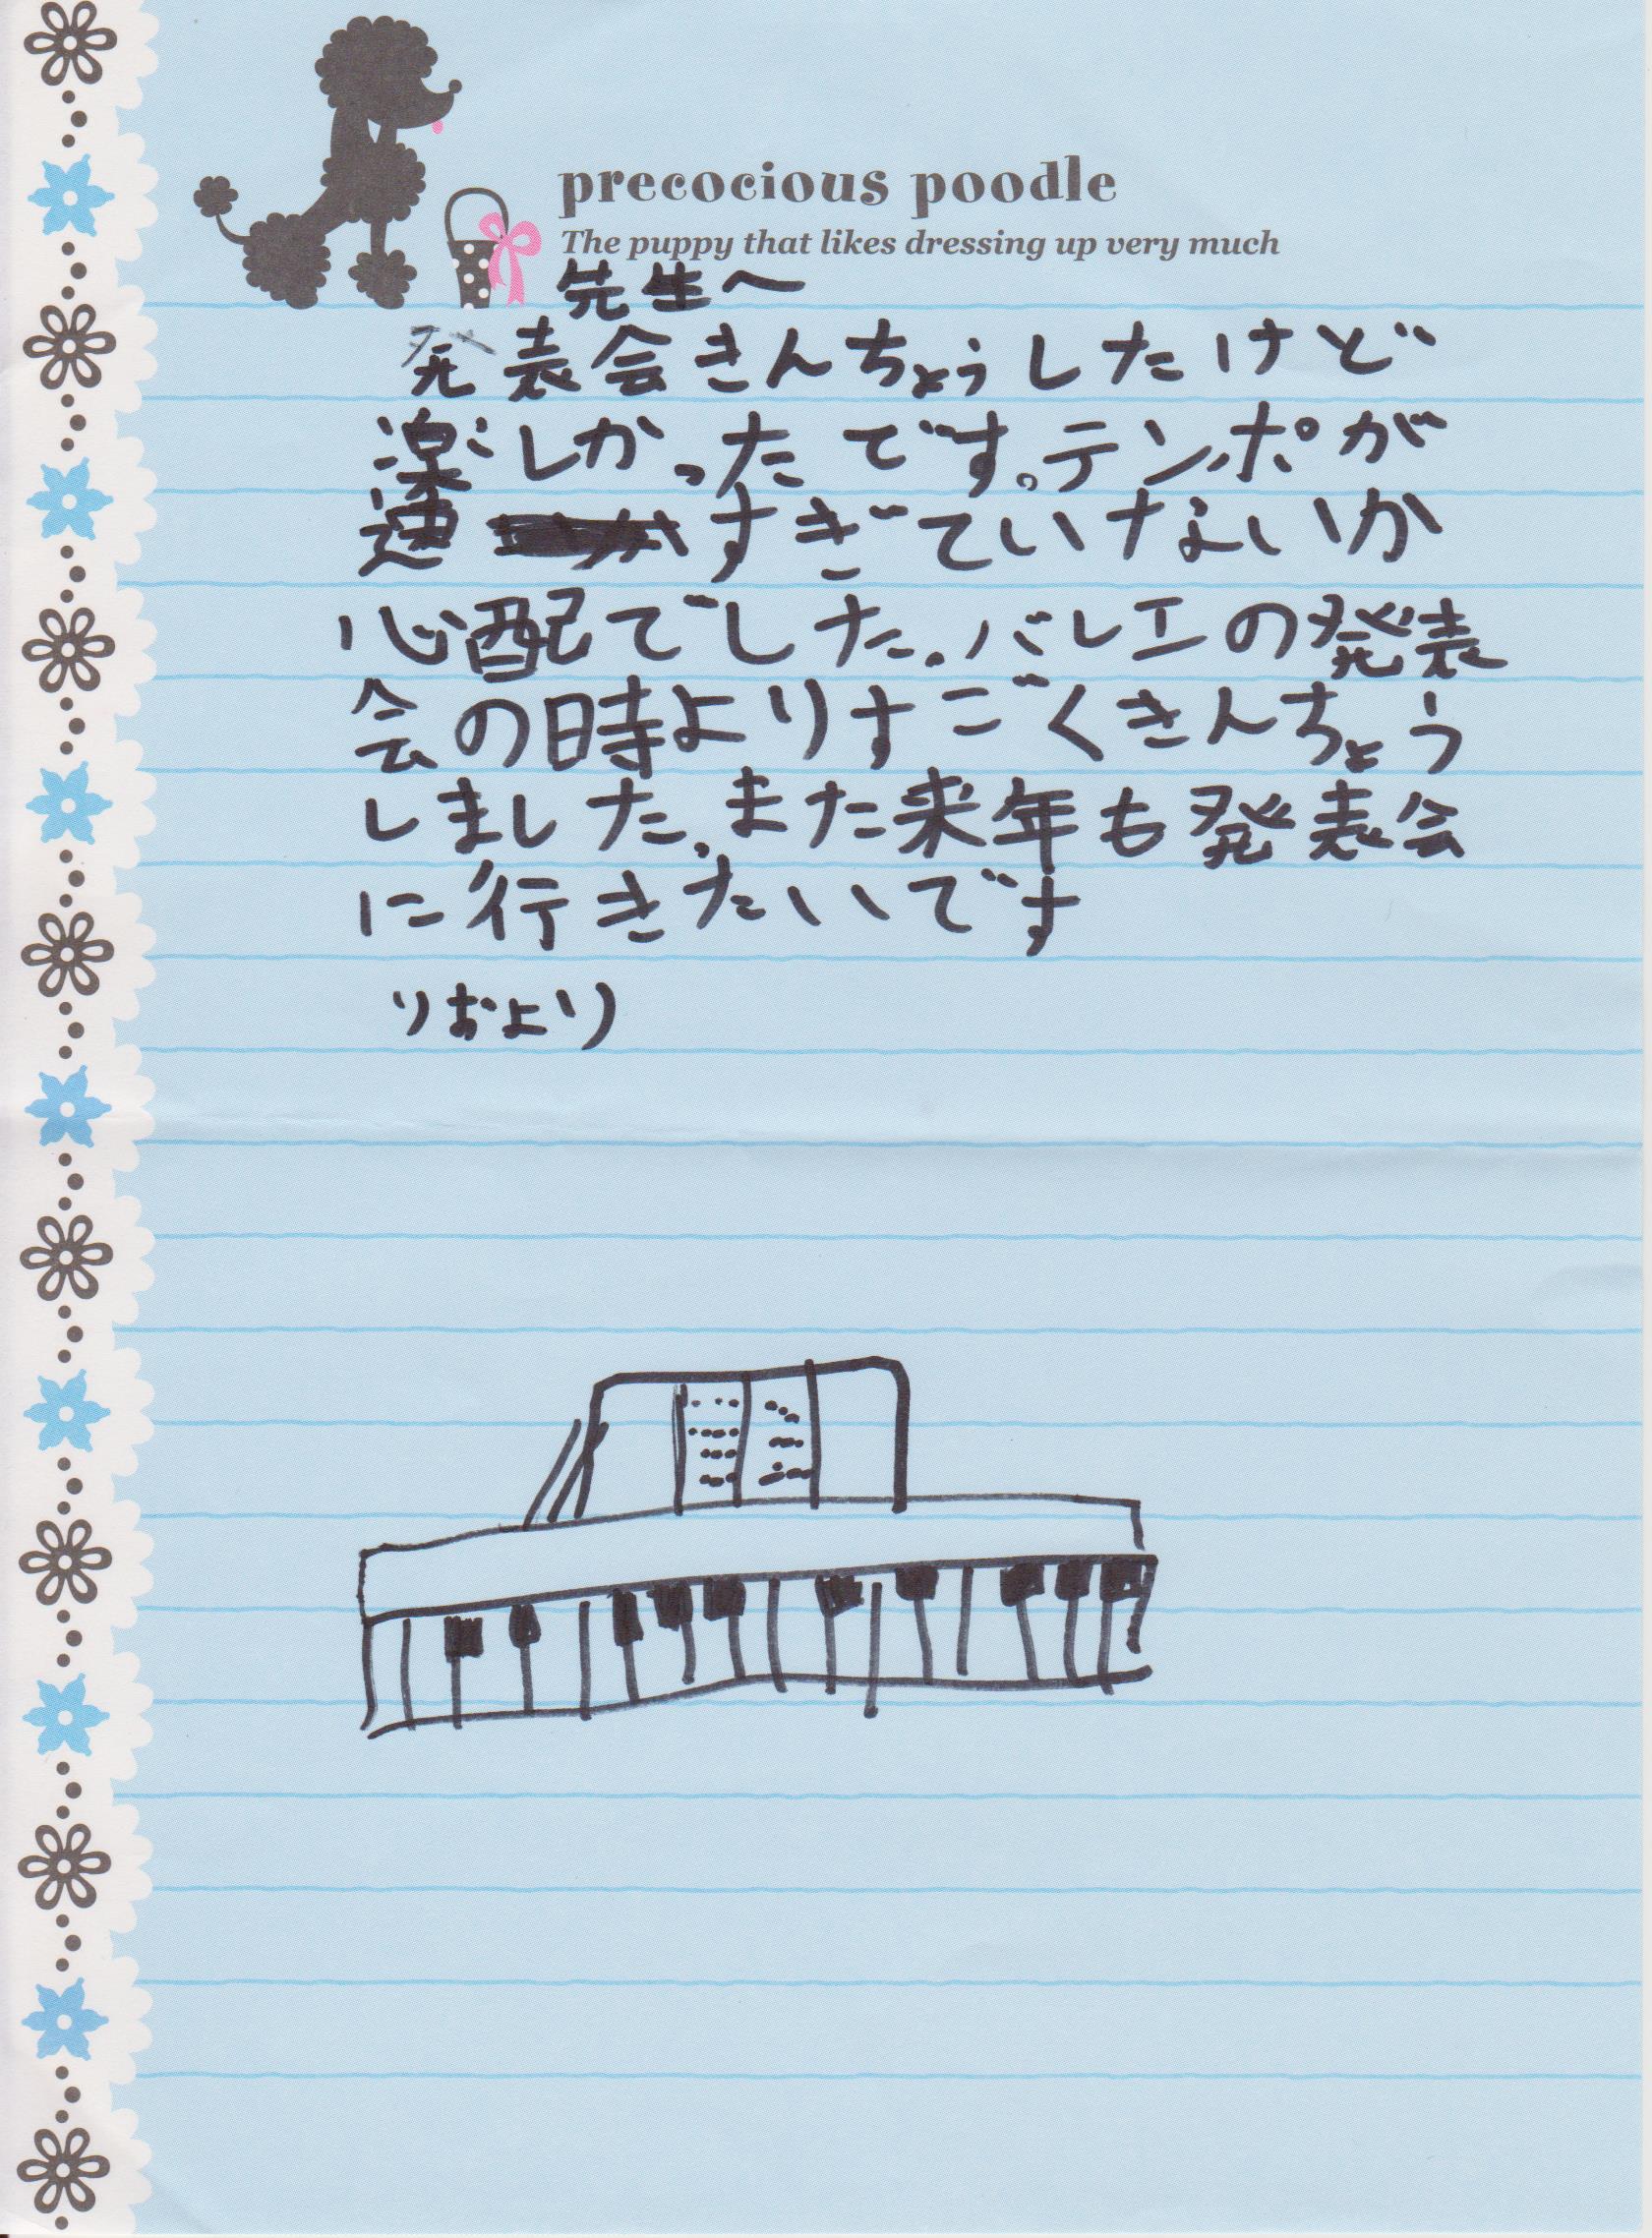 precocious poodle
The puppy that likes dressing up very much
先生へ
発表会きんちょうしたけど
楽しかったです。テンポが
速すぎていなないか
心配でした。バレエの発表
会の時よりすごくきんちょう
しました。また来年も発表会
に行きたいです
りおより